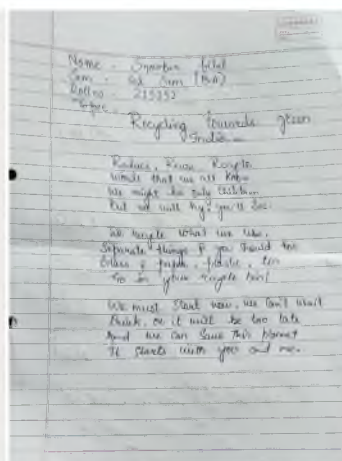 Name -
Sem - 2nd Sem (BA)
Roll no - 215352
Topic -
Recycling towards green
India -
Reduce, Reuse, Recycle
Words that we all know
We might be only children
But we will try, you'll see.
We recycle what we use.
Separate things & you should too
Glass & paper, plastic, tin
Go in your recycle bin!
We must start now, we can't wait
Think, or it will be too late
And we can save this planet
It starts with you and me.